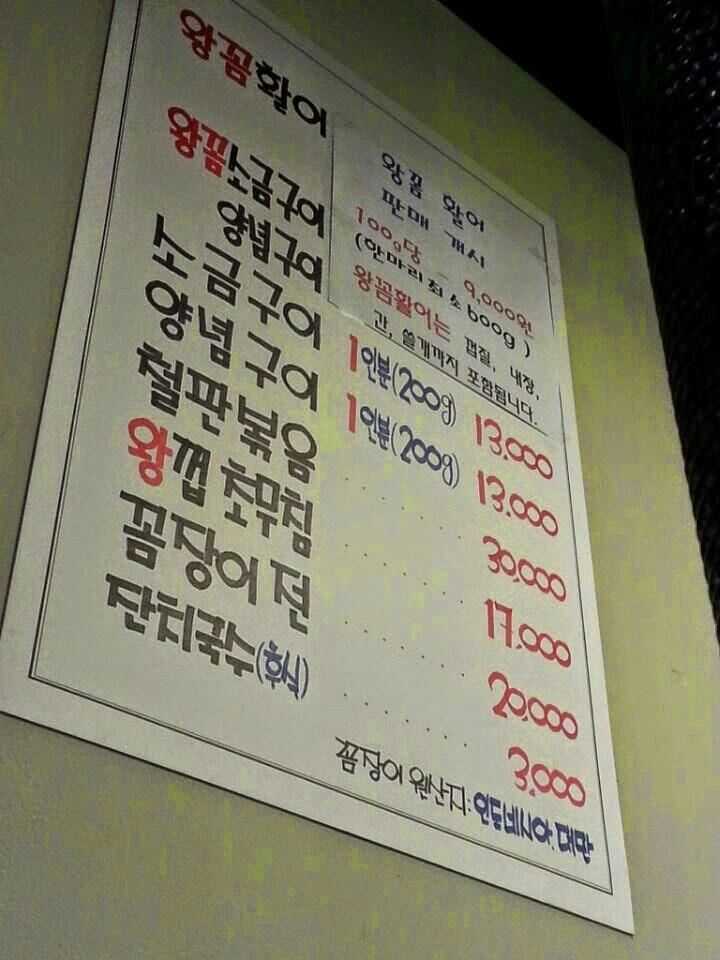 왕꼼활어
왕꼼 활어
판매 개시
100g당 - 9,000원
(한마리최소600g)
왕꼼활어는 껍질, 내장,
간, 쓸개까지 포함됩니다.
왕꼼소금구이
양념구이
소금구이 1인분(200g) 13,000
양념구이 1인분(200g) 13,000
철판볶음 ······ 30,000
왕껍 초무침 ······ 17,000
꼼장어 전 ······ 20,000
잔치국수(후식) ······ 3,000
꼼장어 원산지: 인도네시아, 대만